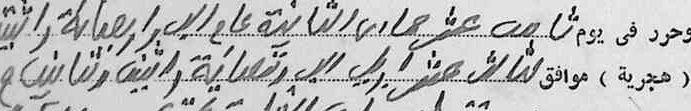 وحرر فى يوم ثامن عشر جمادى الثانية عام الف واربعمائة واثنين
( هجرية ) موافق لثالث عشر ابريل الف وتسعمائة واثنين وثمانين م